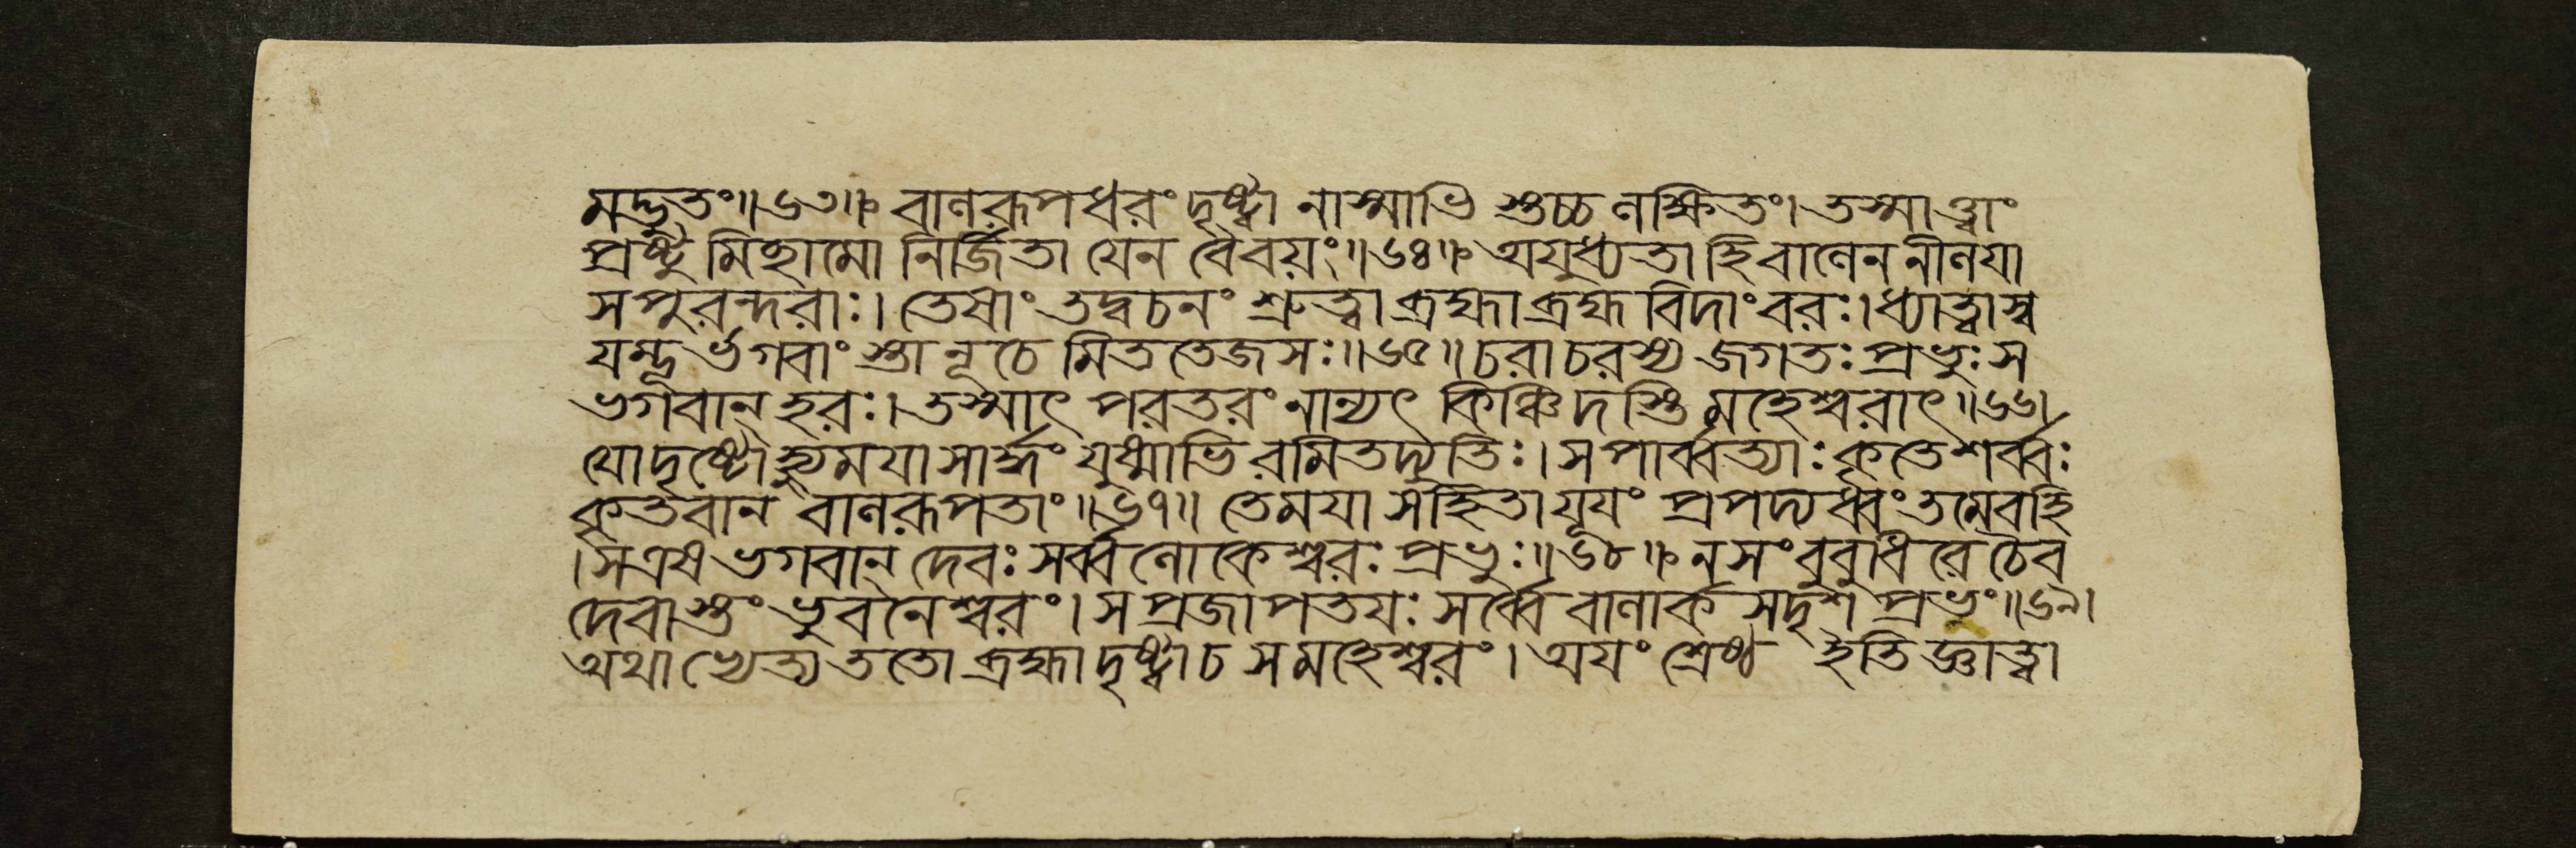 মদ্ভুতং॥৬৩॥ বালরূপধরং দৃষ্ট্বা নাস্মাভিশ্চোপলক্ষিতং। তস্মাত্ত্বাং
প্রষ্টুমিচ্ছামো নির্জিতা যেন বৈ বয়ং॥৬৪॥ অযুধ্যতা হি বালেন লীলয়া
সপুরন্দরাঃ। তেষাং তদ্বচনং শ্রুত্বা ব্রহ্মা ব্রহ্মবিদাং বরঃ। ধ্যাত্বা স্ব
য়ম্ভূর্ভগবাং স্তানূচে মিততেজসঃ॥৬৫॥ চরাচরস্য জগতঃ প্রভুঃ স
ভগবান্ হরঃ। তস্মাৎ পরতরং নান্যৎ কিঞ্চিদস্তি মহেশ্বরাৎ॥৬৬।
যো দৃষ্টো হ্যুময়া সার্দ্ধং যুষ্মাভিরমিতদ্যুতিঃ। স পার্ব্বত্যাঃ কৃতে শর্ব্বঃ
কৃতবান্ বালরূপতাং॥৬৭॥ তে ময়া সহিতা যূয়ং প্রপদ্যধ্বং তমেব হি
। স এষ ভগবান্ দেবঃ সর্ব্বলোকেশ্বরঃ প্রভুঃ॥৬৮॥ ন সংবুবুধিরে চৈব
দেবাস্তং ভুবনেশ্বরং। সপ্রজাপতয়ঃ সর্ব্বে বালার্কসদৃশপ্রভং॥৬৯।
অথাভ্যেত্য ততো ব্রহ্মা দৃষ্ট্বা চ স মহেশ্বরং। অয়ং শ্রেষ্ঠ ইতি জ্ঞাত্বা